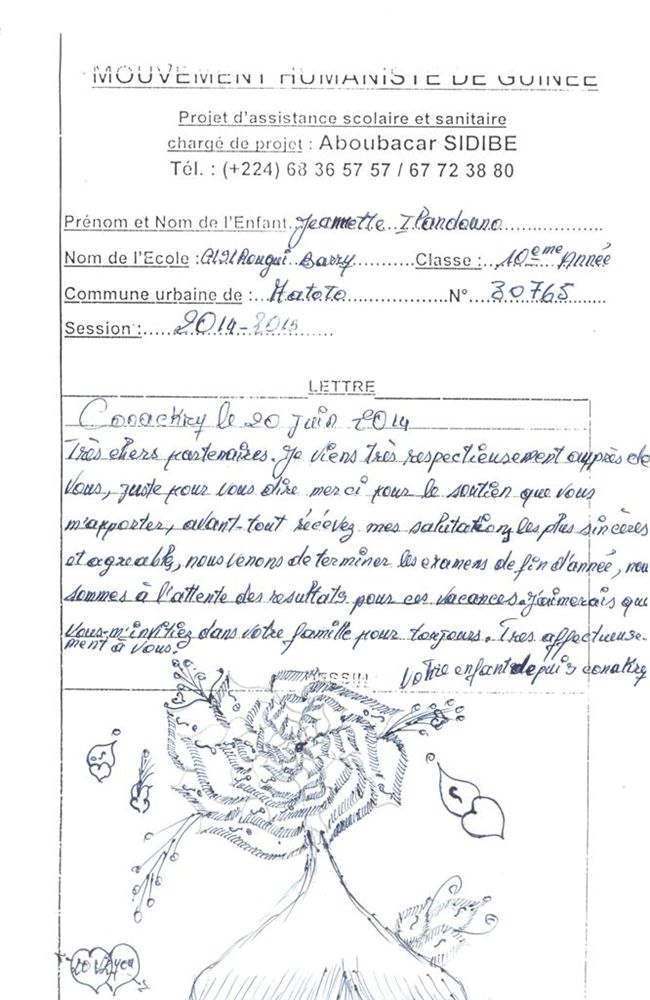 MOUVEMENT HUMANISTE DE GUINEE
Projet d'assistance scolaire et sanitaire
chargé de projet : Aboubacar SIDIBE
Tél. : (+224) 68 36 57 57 / 67 72 38 80
Prénom et Nom de l'Enfant Jeannette I Pandouno
Nom de l'Ecole : Hougui Barry Classe : 10ème Année
Commune urbaine de : Matoto N° 30765
Session : 2014-2015
LETTRE
Conackry le 20 Juin 2014
Très chers partenaires. Je viens très respectieusement auprès de
Vous, juste pour vous dire merci pour le soutien que vous
m'apporter, avant-tout récévez mes salutations les plus sincères
et agreable, nous venons de terminer les examens de fin d'année, nou
sommes à l'attente des resultats pour ces vacances. J'aimerais que
Vous m'invitiez dans votre famille pour toujours. Tres affectueuse-
ment à vous.
Votre enfant depuis conakry
DESSIN